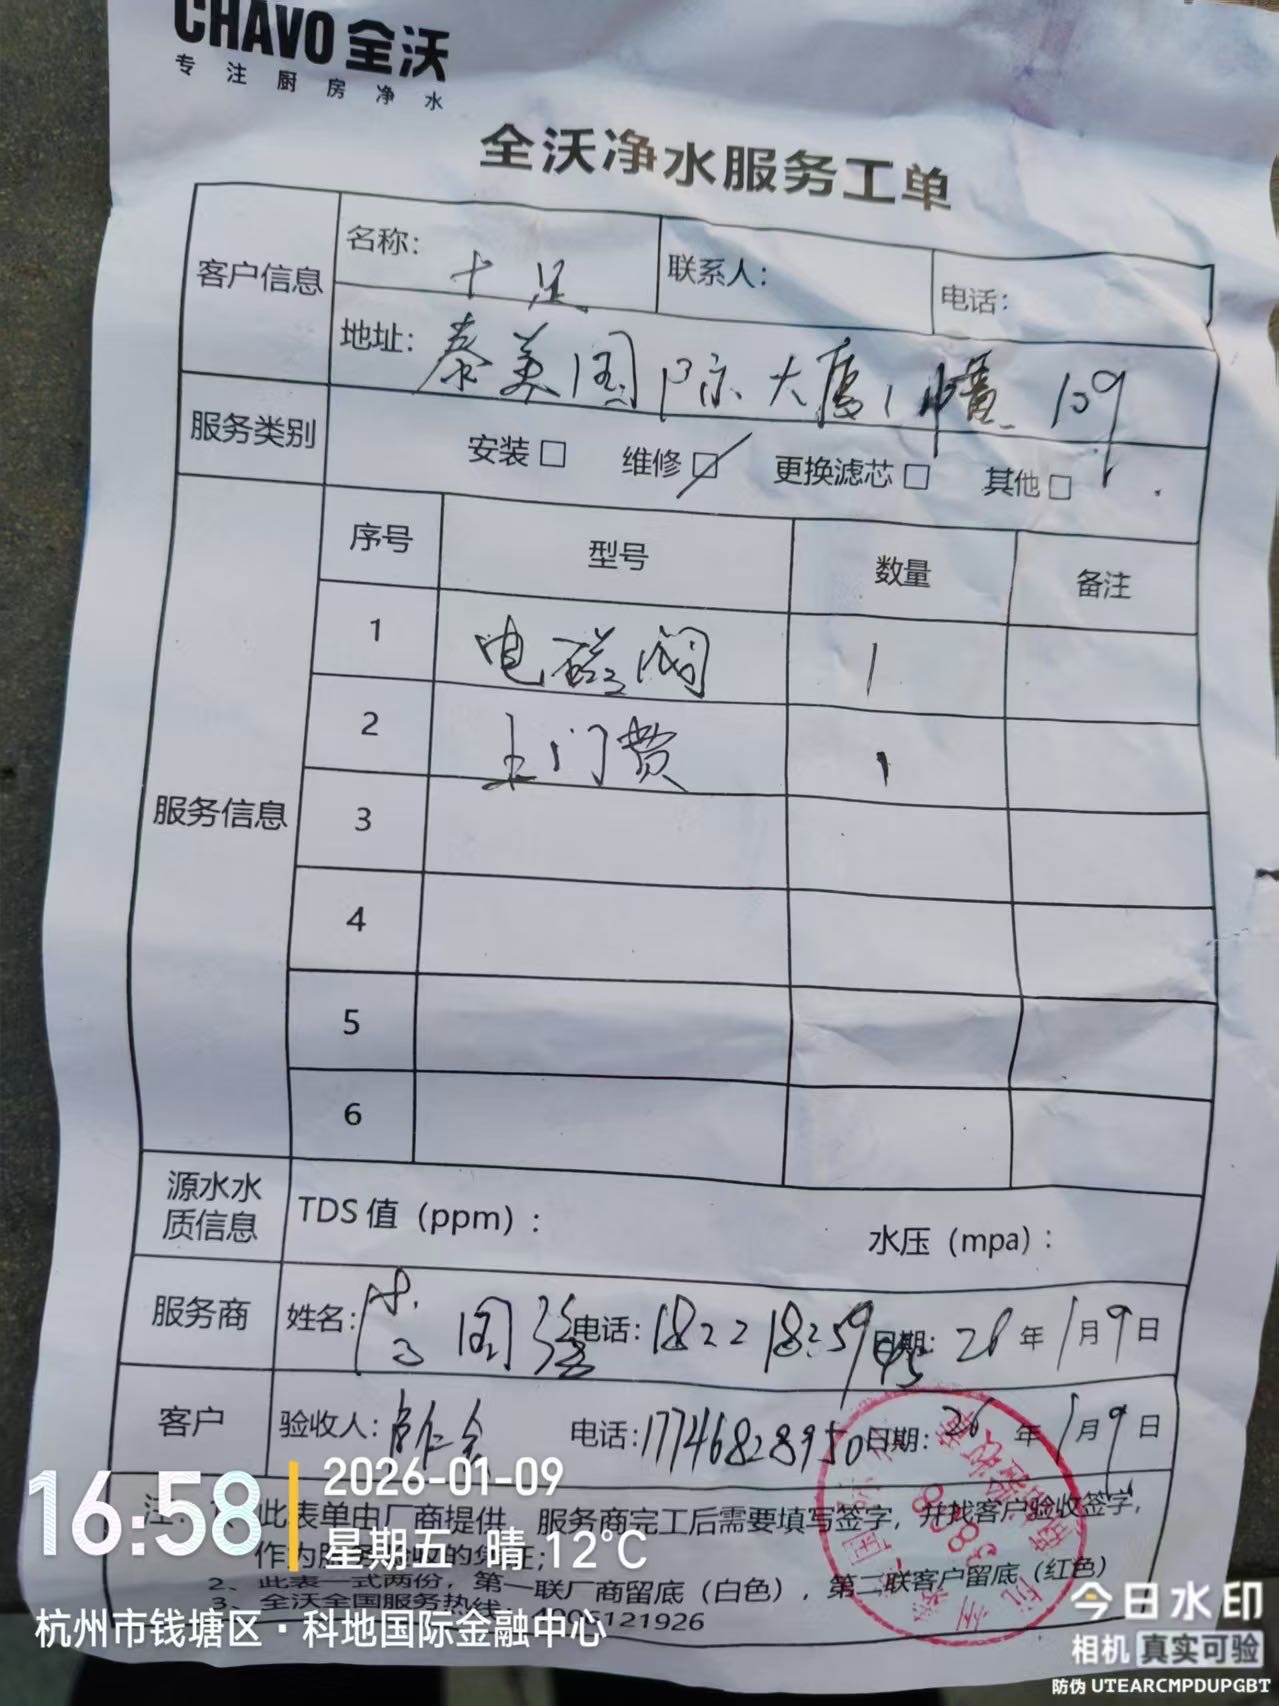 CHAVO 全沃
专注厨房净水
全沃净水服务工单
客户信息
名称: 十足
联系人:
电话:
地址: 泰美国际大厦1幢 109
服务类别
安装□ 维修☑ 更换滤芯□ 其他□
序号 型号 数量 备注
服务信息
1 电磁阀 1
2 上门费 1
3
4
5
6
源水水质信息
TDS 值(ppm): 水压(mpa):
服务商 姓名: 国强 电话: 18221825995 日期: 26年1月9日
客户 验收人: 电话: 17746828950 日期: 26年1月9日
此表单由厂商提供 服务商完工后需要填写签字,并找客户验收签字,
2、此表一式两份,第一联厂商留底(白色),第二联客户留底(红色)
3、全沃全国服务热线: 4006121926
16:58
2026-01-09
星期五 晴 12°C
杭州市钱塘区·科地国际金融中心
今日水印
相机 真实可验
防伪 UTEARCMPDUPGBT